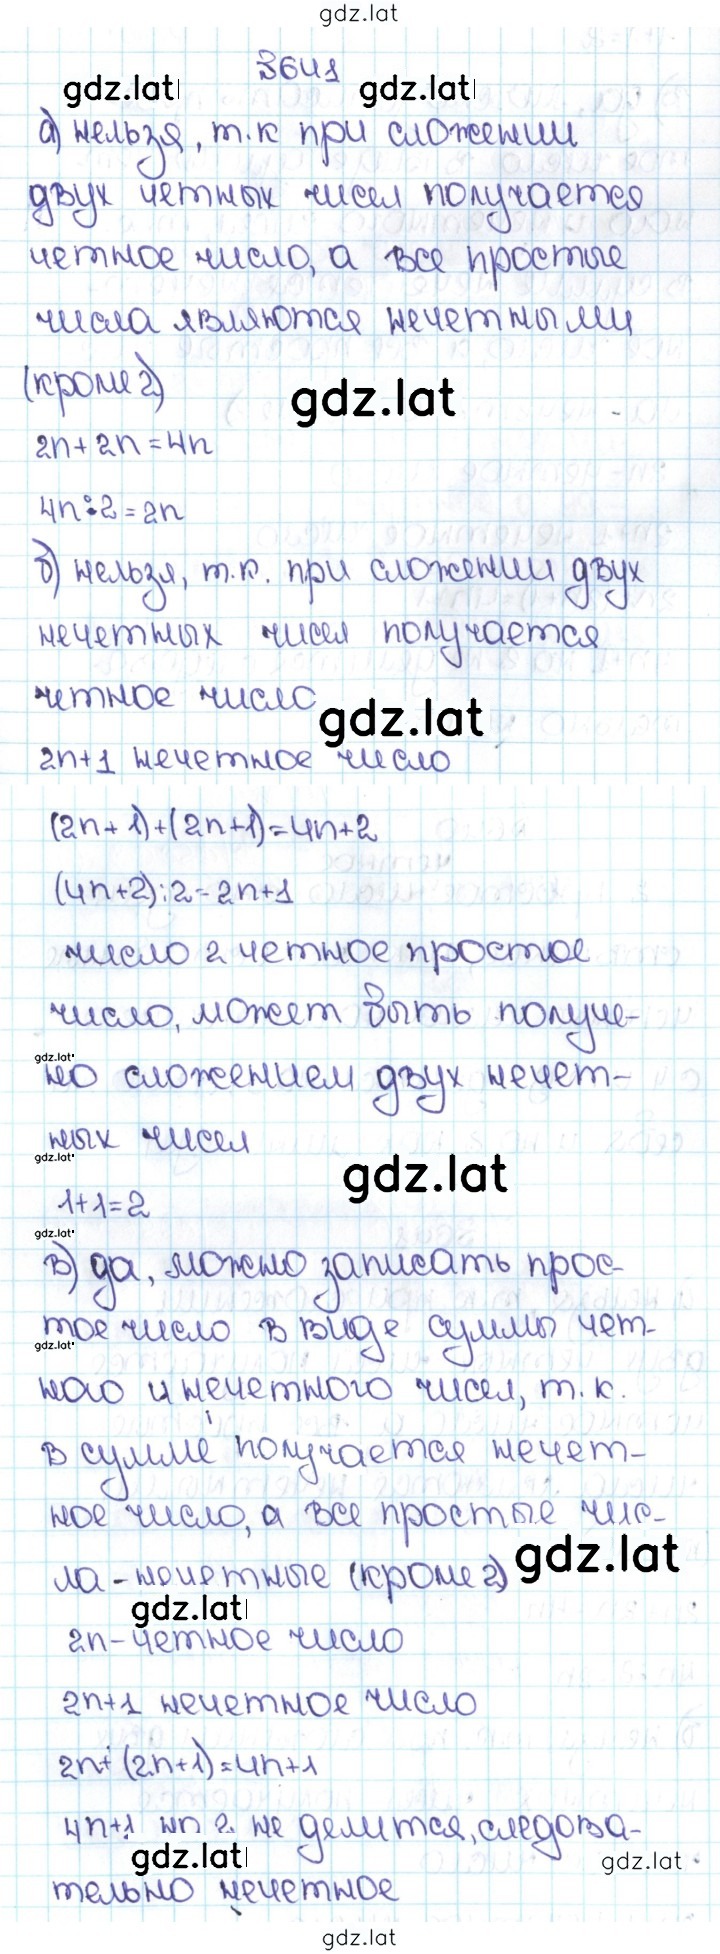 gdz.lat
3641
gdz.lat gdz.lat
а) нельзя, т.к при сложении
двух четных чисел получается
четное число, а все простые
числа являются нечетными
(кроме 2)
gdz.lat
2n+2n=4n
4n:2=2n
б) нельзя, т.к. при сложении двух
нечетных чисел получается
четное число
gdz.lat
2n+1 нечетное число
(2n+1)+(2n+1)=4n+2
(4n+2):2=2n+1
число 2 четное простое
число, может быть получе-
gdz.lat
но сложением двух нечет-
ных чисел
gdz.lat
gdz.lat
1+1=2
gdz.lat
в) да, можно записать прос-
тое число в виде суммы чет-
gdz.lat
ного и нечетного чисел, т.к.
в сумме получается нечет-
ное число, а все простые чис-
ла - нечетные (кроме 2)
gdz.lat
gdz.lat
2n - четное число
2n+1 нечетное число
2n+(2n+1)=4n+1
4n+1 на 2 не делится, следова-
gdz.lat gdz.lat
тельно нечетное
gdz.lat